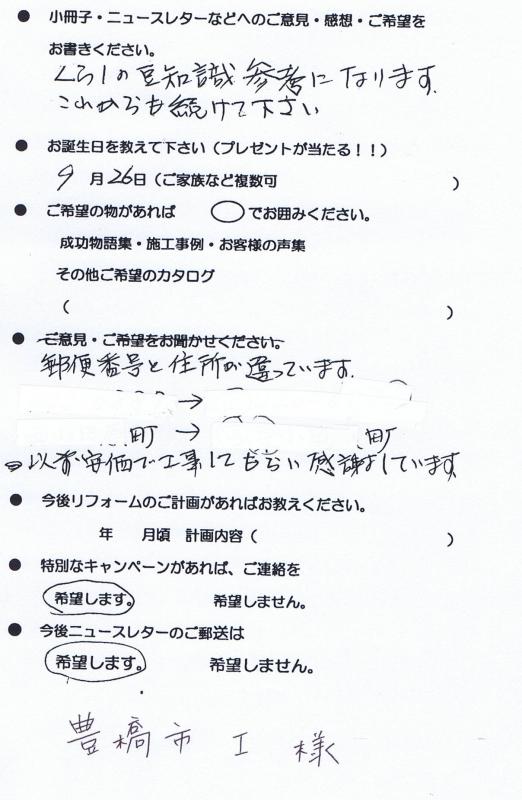 ● 小冊子・ニュースレターなどへのご意見・感想・ご希望を
お書きください。
くらしの豆知識参考になります。
これからも続けて下さい
● お誕生日を教えて下さい(プレゼントが当たる!!)
9月26日(ご家族など複数可 )
● ご希望の物があれば ◯でお囲みください。
成功物語集・施工事例・お客様の声集
その他ご希望のカタログ
( )
● ご意見・ご希望をお聞かせください。
郵便番号と住所が違っています。
→
町 → 町
以前安価で工事してもらい感謝しています
● 今後リフォームのご計画があればお教えください。
年 月頃 計画内容( )
● 特別なキャンペーンがあれば、ご連絡を
希望します。 希望しません。
● 今後ニュースレターのご郵送は
希望します。 希望しません。
豊橋市 I 様